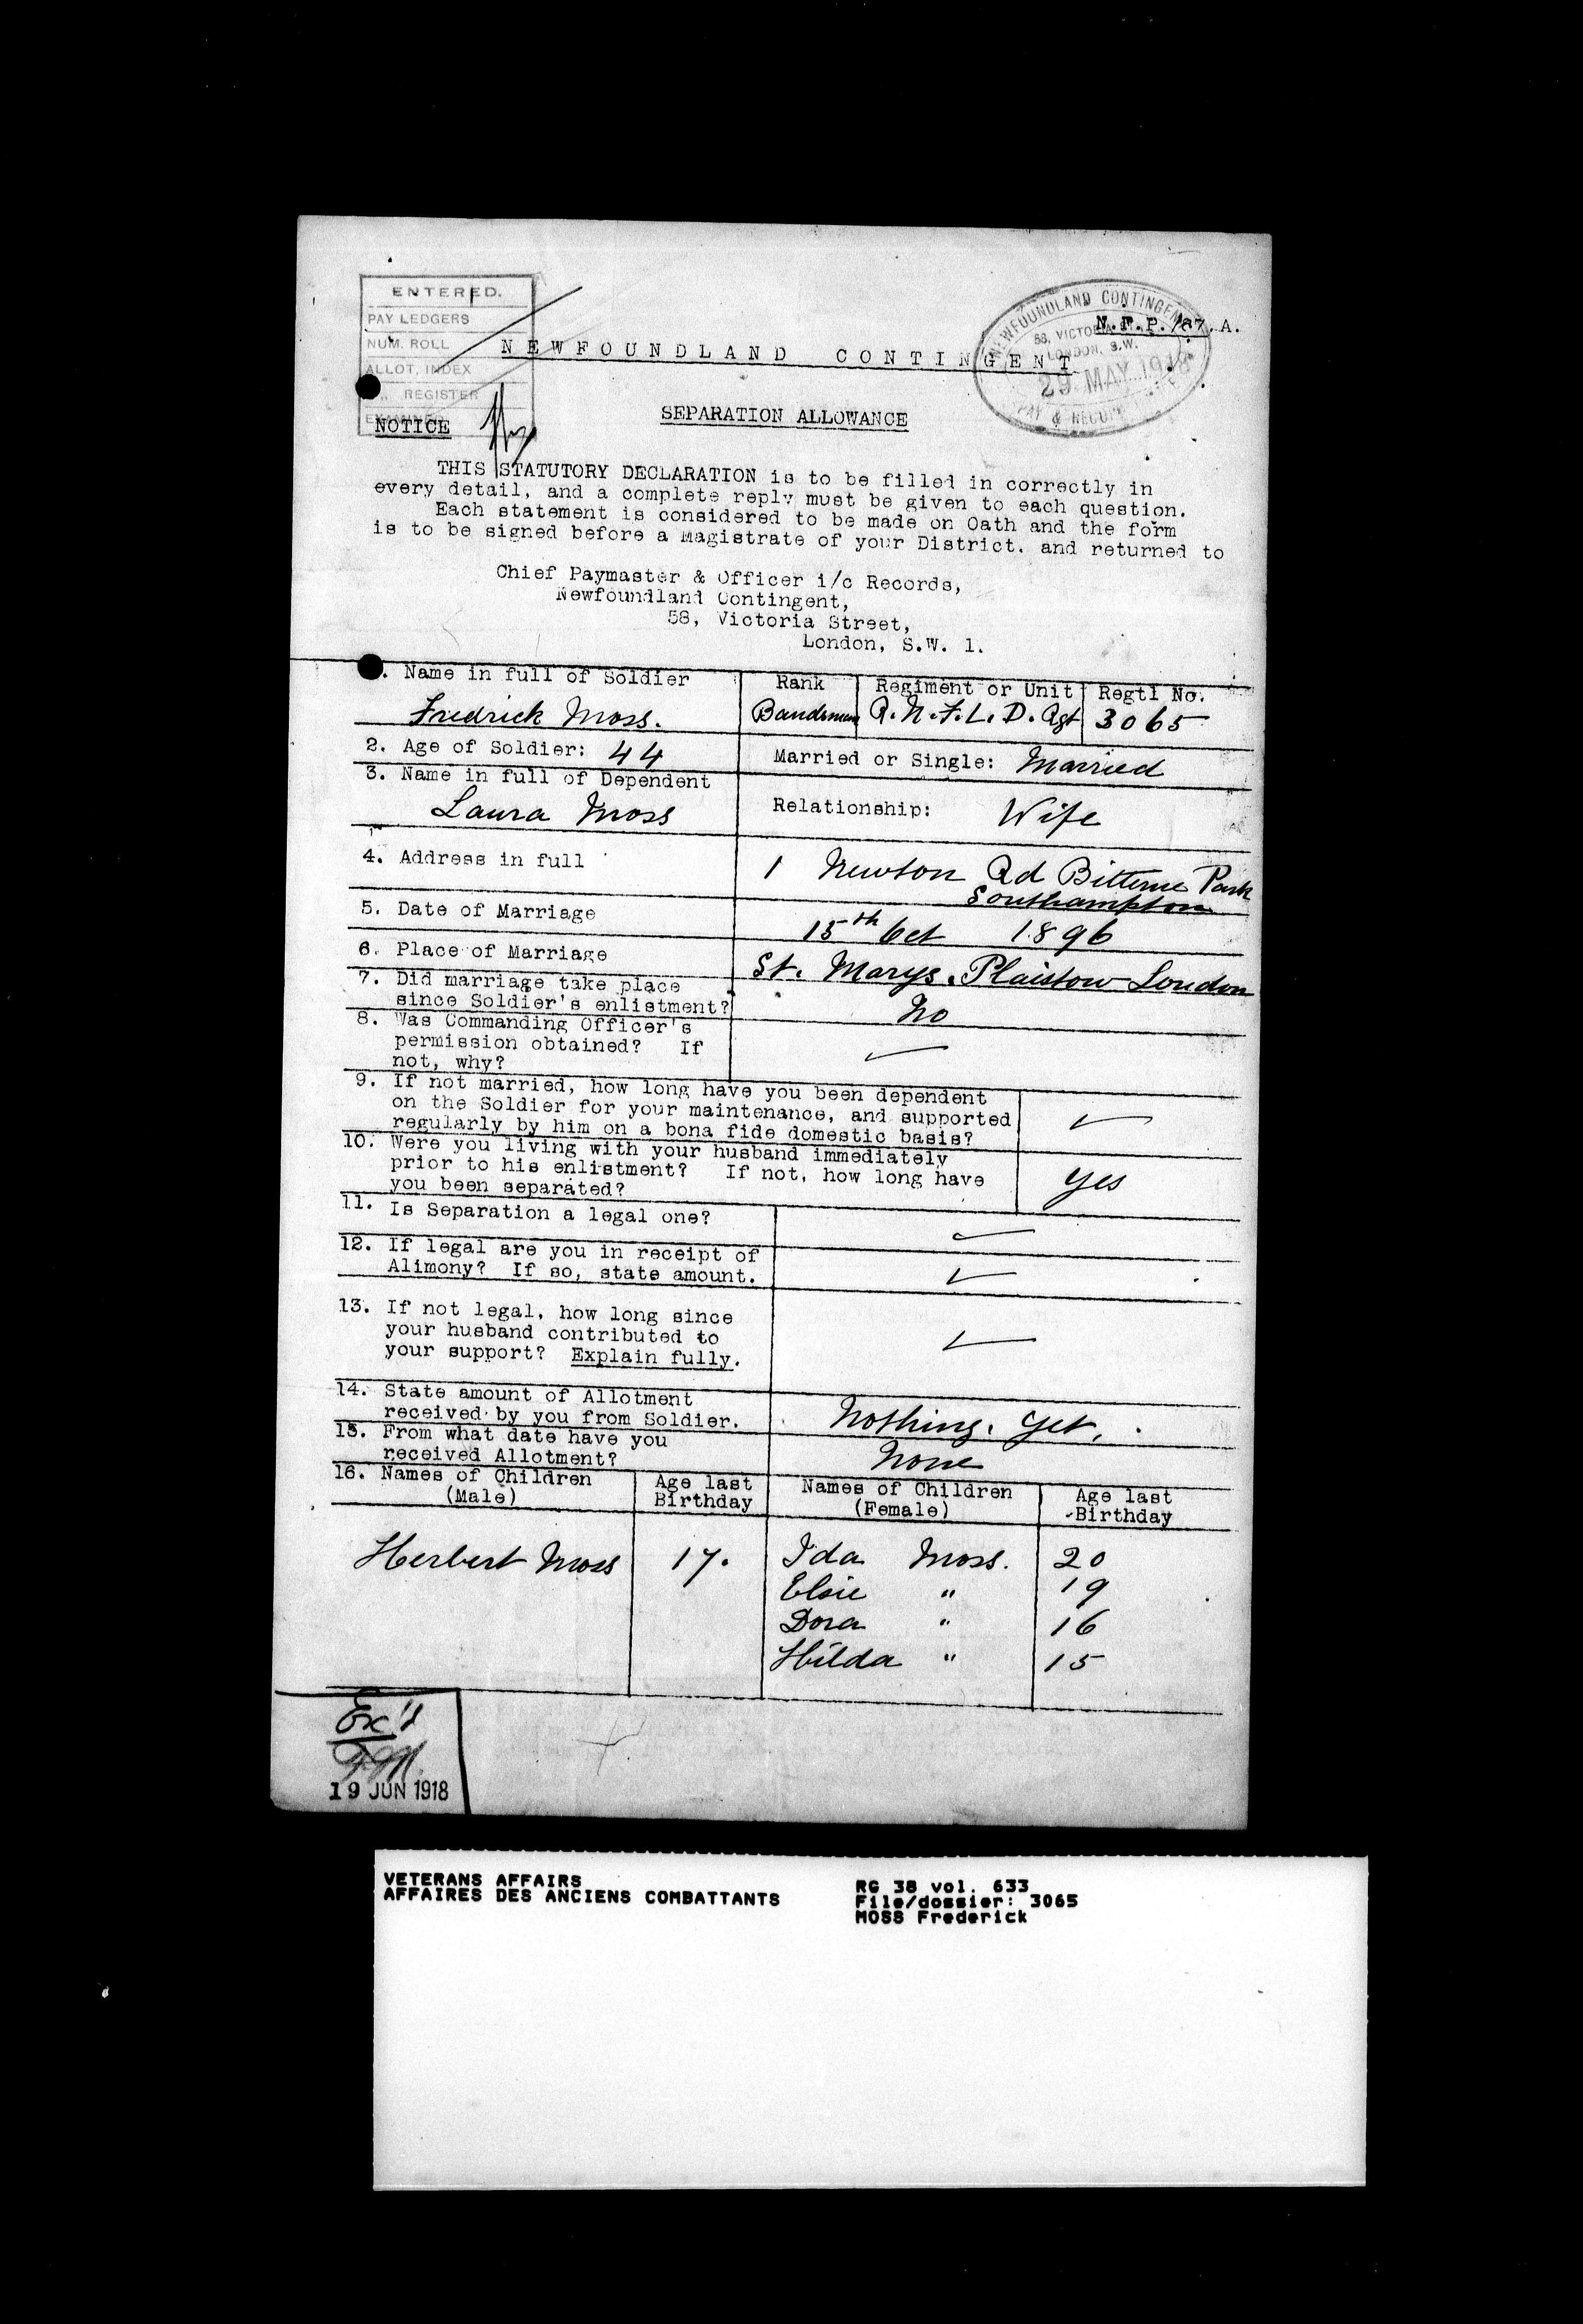 ENTERED.
PAY LEDGERS
NUM. ROLL
ALLOT. INDEX
„ REGISTER
EXAMINED
NEWFOUNDLAND CONTINGENT
58, VICTORIA
LONDON, S.W.
29 MAY 1918
PAY & RECORD
N.F.P./87.A.
NEWFOUNDLAND CONTINGENT
SEPARATION ALLOWANCE
NOTICE
THIS STATUTORY DECLARATION is to be filled in correctly in
every detail, and a complete reply must be given to each question.
Each statement is considered to be made on Oath and the form
is to be signed before a Magistrate of your District. and returned to
Chief Paymaster & Officer i/c Records,
Newfoundland Contingent,
58, Victoria Street,
London, S.W. 1.
. Name in full of Soldier Rank Regiment or Unit Regtl No.
Fredrick Moss. Bandsman R.N.F.L.D. Rgt 3065
2. Age of Soldier: 44 Married or Single: Married
3. Name in full of Dependent
Laura Moss Relationship: Wife
4. Address in full 1 Newton Rd Bitterne Park
Southampton
5. Date of Marriage 15th Oct 1896
6. Place of Marriage St. Marys. Plaistow London
7. Did marriage take place
since Soldier's enlistment? No
8. Was Commanding Officer's
permission obtained? If
not, why?
9. If not married, how long have you been dependent
on the Soldier for your maintenance, and supported
regularly by him on a bona fide domestic basis?
10. Were you living with your husband immediately
prior to his enlistment? If not, how long have Yes
you been separated?
11. Is Separation a legal one?
12. If legal are you in receipt of
Alimony? If so, state amount.
13. If not legal, how long since
your husband contributed to
your support? Explain fully.
14. State amount of Allotment
received by you from Soldier. Nothing. Yet.
15. From what date have you
received Allotment? None
16. Names of Children Age last Names of Children Age last
(Male) Birthday (Female) Birthday
Herbert Moss 17. Ida Moss. 20
Elsie " 19
Dora " 16
Hilda " 15
Ex'd
19 JUN 1918
VETERANS AFFAIRS RG 38 vol. 633
AFFAIRES DES ANCIENS COMBATTANTS File/dossier: 3065
MOSS Frederick